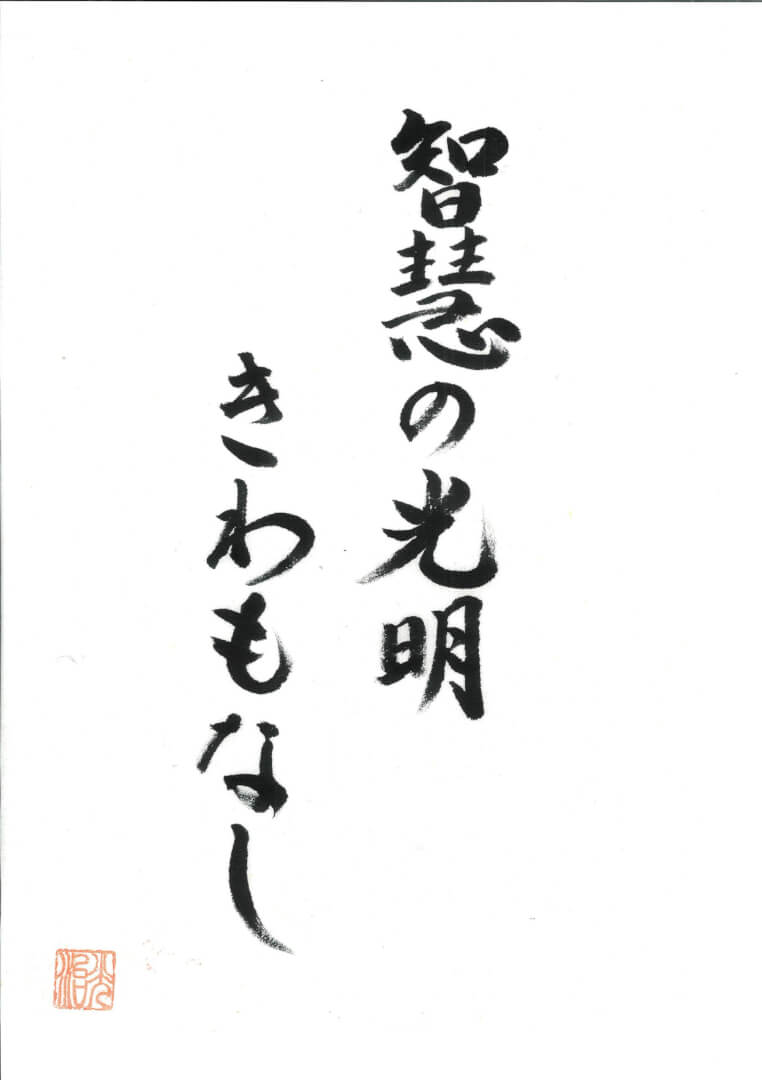 智慧の光明
きわもなし